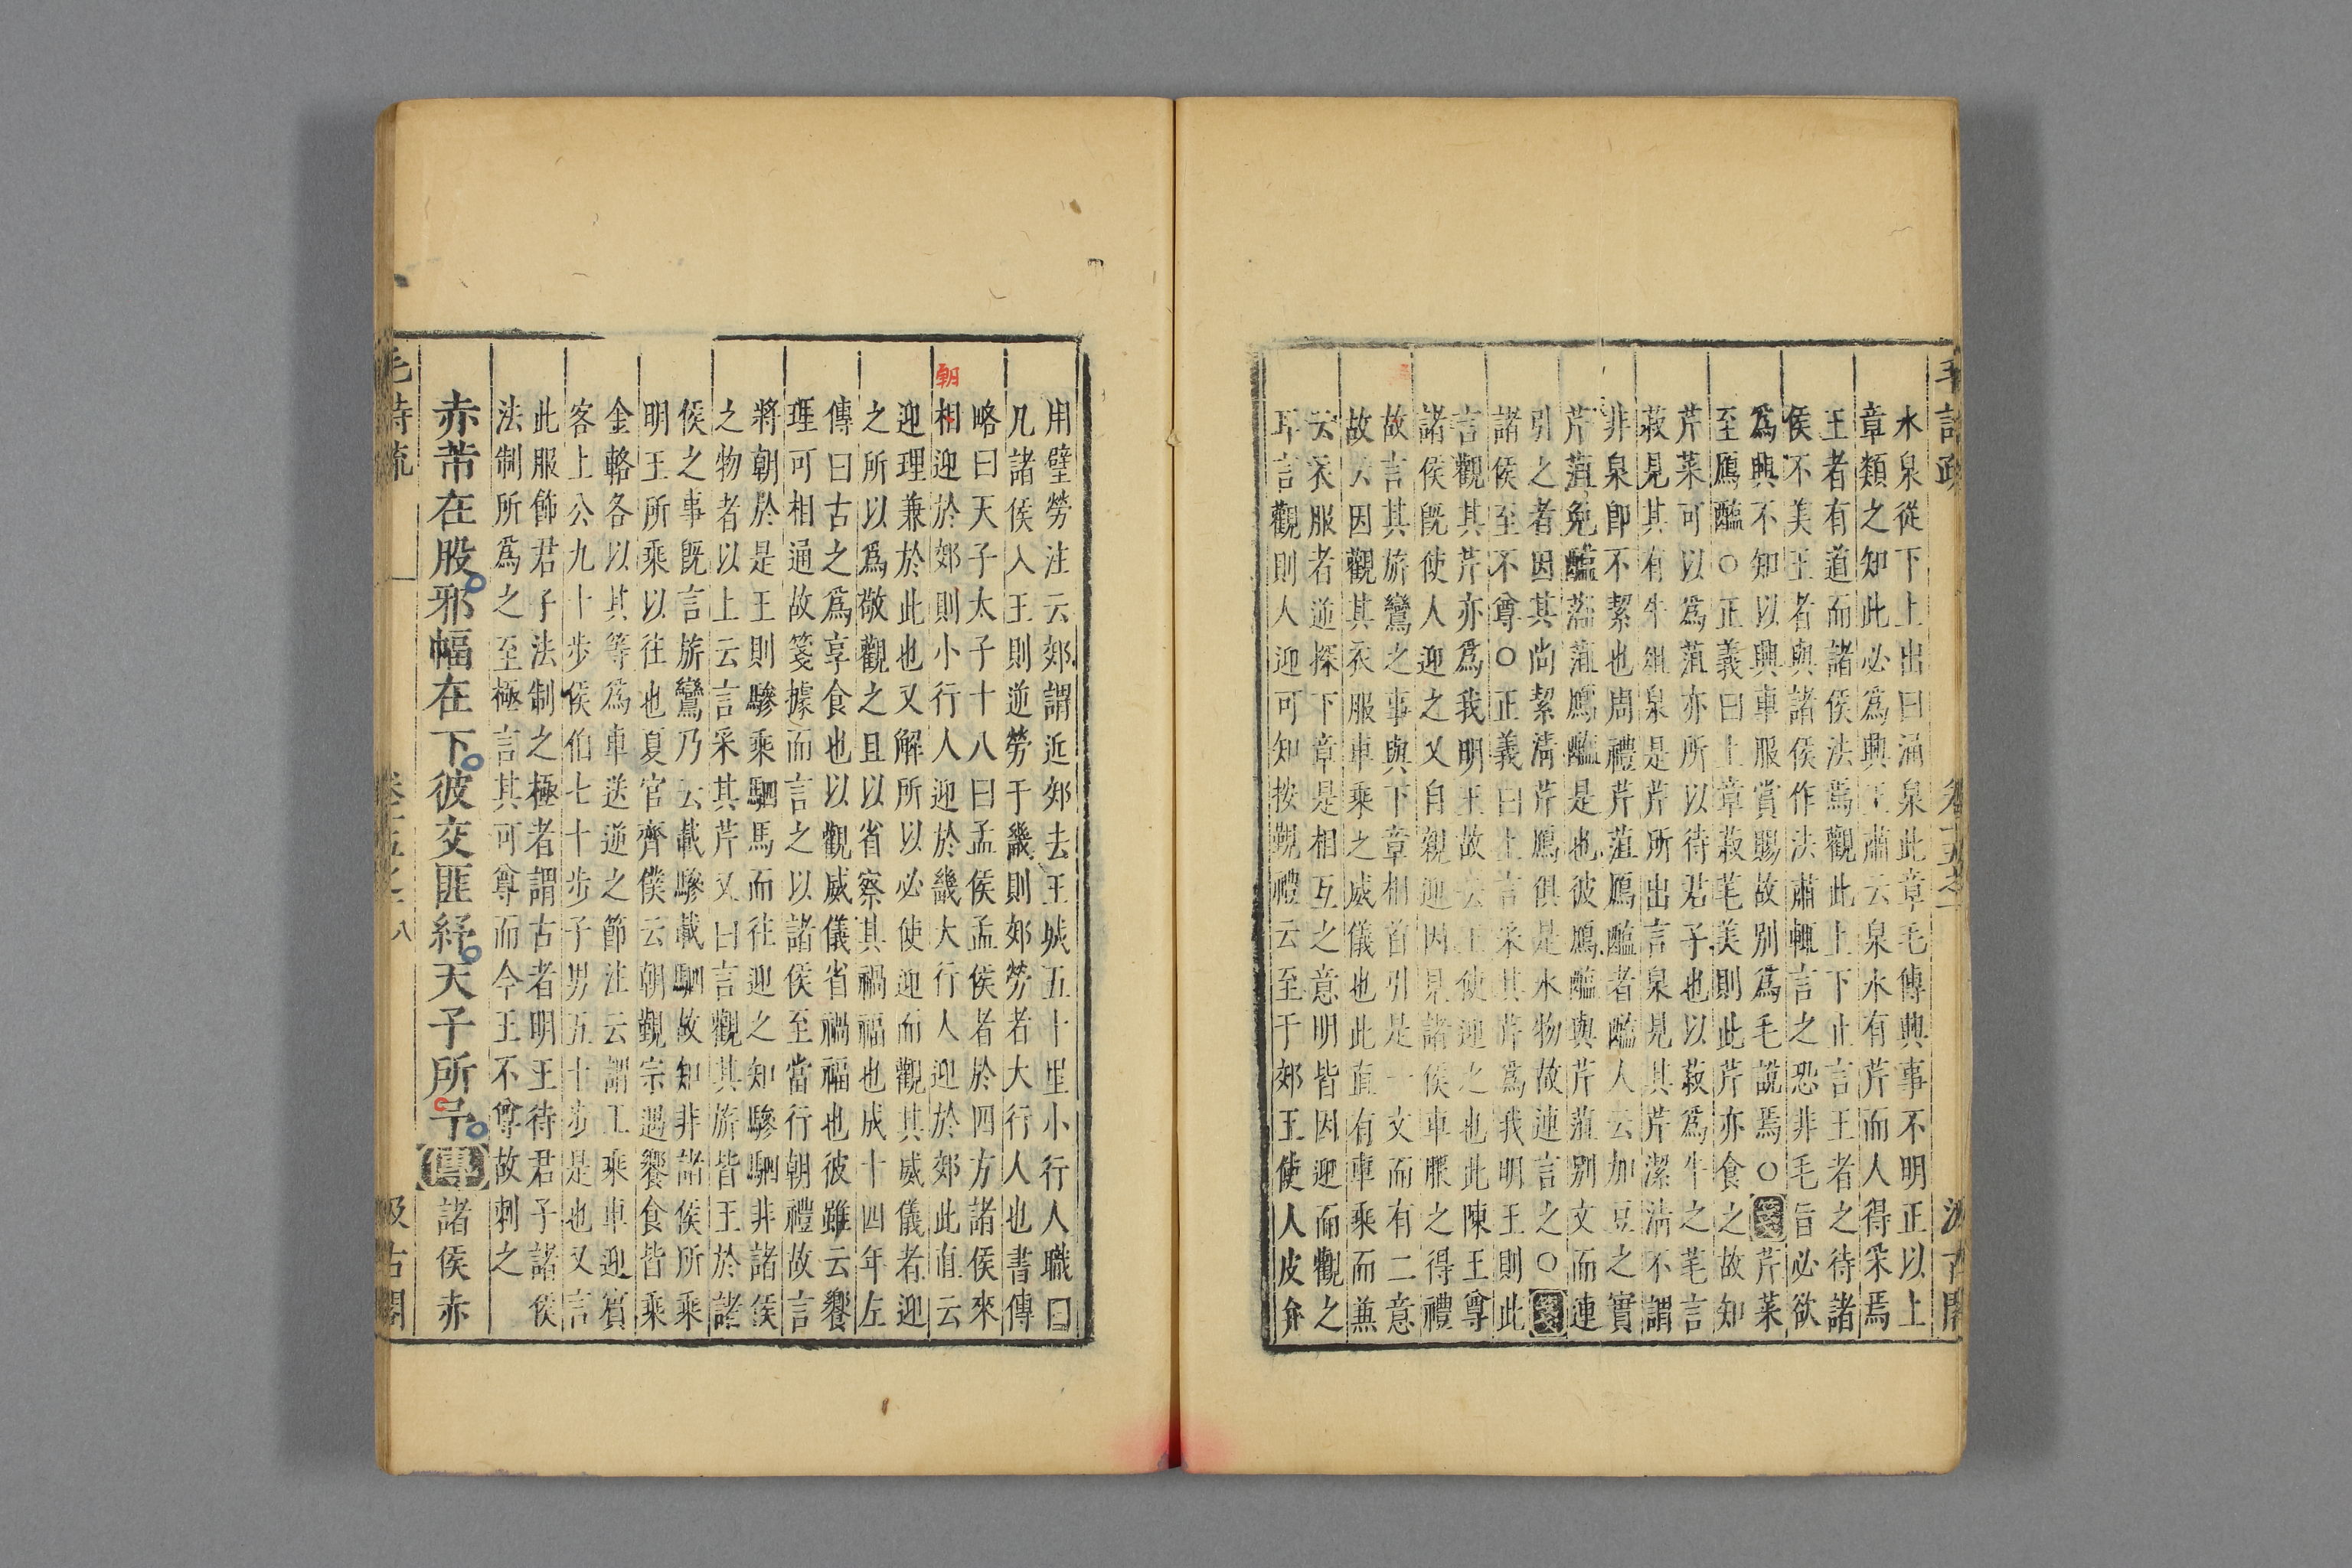 水泉從下上出曰涌泉此章毛傳興事不明正以上
章類之知此必爲興王肅云泉水有芹而人得采焉
王者有道而諸侯法焉觀此上下止言王者之待諸
侯不美王者與諸侯作法肅輒言之恐非毛旨必欲
爲興不知以興車服賞賜故別爲毛說焉○箋芹菜
至鴈醢○正義曰上章菽芼美則此芹亦食之故知
芹菜可以爲菹亦所以待君子也以菽爲牛之芼言
菽見其有牛俎泉是芹所出言泉見其芹潔淸不謂
非泉卽不絜也周禮芹菹鴈醢者醢人云加豆之實
芹菹兔醢菭菹鴈醢是也彼鴈醢與芹菹別文而連
引之者因其尚絜淸芹鴈俱是水物故連言之○箋
諸侯至不尊○正義曰上言采其芹爲我明王則此
言觀其芹亦爲我明王故云王使迎之也此陳王尊
諸侯旣使人迎之又自親迎因見諸侯車服之得禮
故言其旂鸞之事與下章相首引是一文而有二意
故云因觀其衣服車乘之威儀也此直有車乘而兼
云衣服者逆探下章是相互之意明皆因迎而觀之
耳言觀則人迎可知按覲禮云至于郊王使人皮弁
用璧勞注云郊謂近郊去王城五十里小行人職曰
凡諸侯入王則逆勞于畿則郊勞者大行人也書傳
略曰天子太子十八曰孟侯孟侯者於四方諸侯來
朝
相迎於郊則小行人迎於畿大行人迎於郊此直云
迎理兼於此也又解所以必使迎而觀其威儀者迎
之所以爲敬觀之且以省察其禍福也成十四年左
傳曰古之爲享食也以觀威儀省禍福也彼雖云饗
理可相通故箋據而言之以諸侯至當行朝禮故言
將朝於是王則驂乘駟馬而往迎之知驂駟非諸侯
之物者以上云言采其芹又曰言觀其旂皆王於諸
侯之事旣言旂鸞乃云載驂載駟故知非諸侯所乘
明王所乘以往也夏官齊僕云朝覲宗遇饗食皆乘
金輅各以其等爲車送逆之節注云謂王乘車迎賓
客上公九十步侯伯七十步子男五十步是也又言
此服飾君子法制之極者謂古者明王待君子諸侯
法制所爲之至極言其可尊而今王不尊故刺之
赤芾在股邪幅在下彼交匪紓天子所予傳諸侯赤
毛詩疏
八
汲古閣